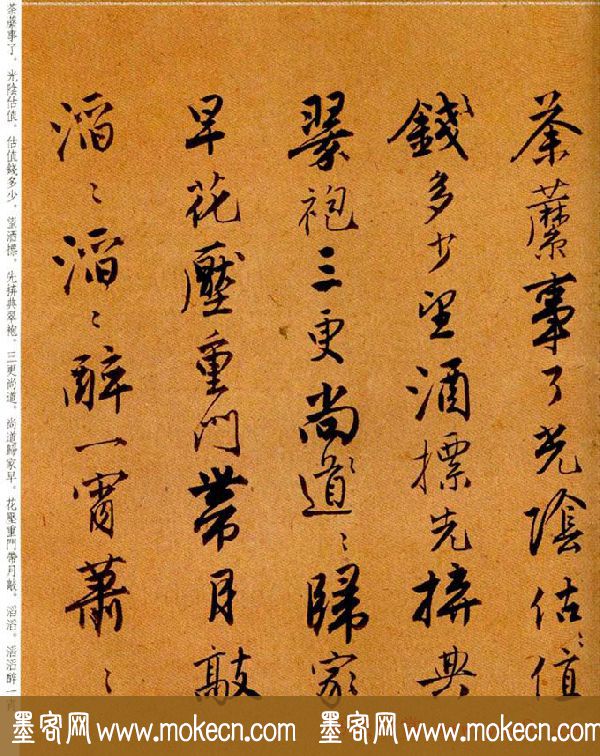 荼蘼事了光陰估〻值
錢多少望酒標先拚典
翠袍三更尚〻道〻歸家
早花壓重門帶月敲
滔〻滔〻醉一宵蕭〻
荼蘼事了。光陰估值。估值錢多少。望酒標。先拚典翠袍。三更尚道。尚道歸家早。花壓重門帶月敲。滔滔。滔滔醉一宵
墨客网 www.mokecn.com 墨客网 www.mokecn.com